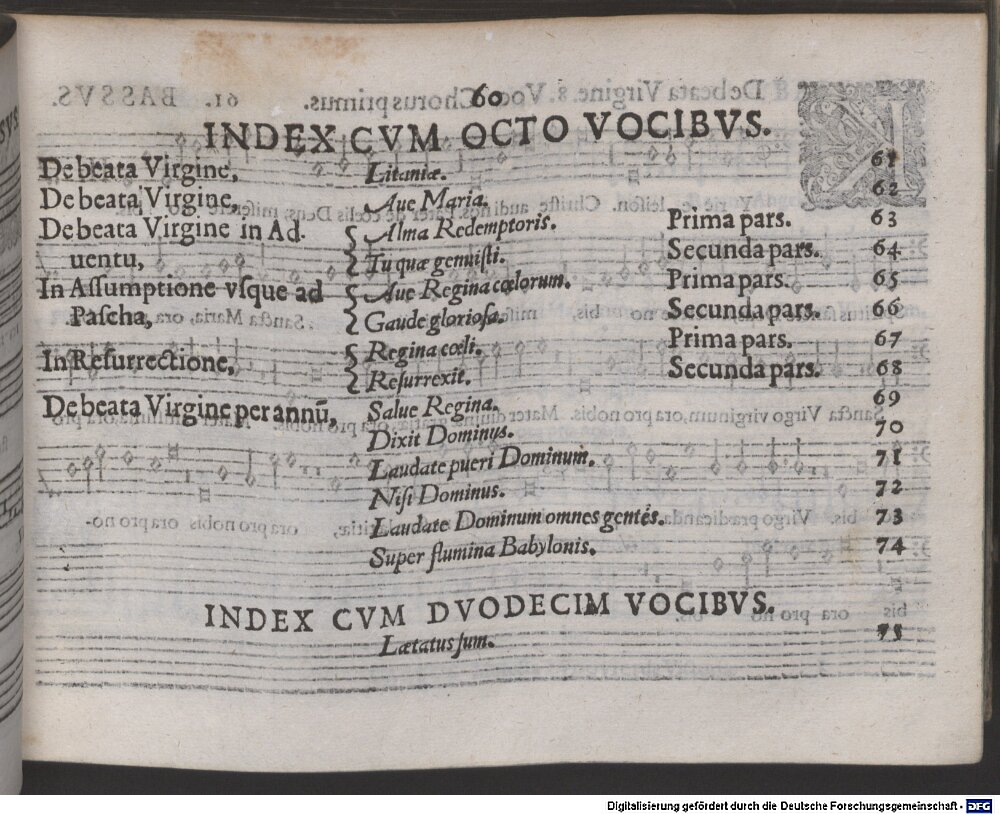 60
INDEX CVM OCTO VOCIBVS.
De beata Virgine, Litaniæ. 61
De beata Virgine, Aue Maria. 62
De beata Virgine in Ad- Alma Redemptoris. Prima pars. 63
uentu, Tu quæ genuiſti. Secunda pars. 64
In Aſſumptione vſque ad Aue Regina cœlorum. Prima pars. 65
Paſcha, Gaude glorioſa. Secunda pars. 66
Regina cœli. Prima pars. 67
In Reſurrectione, Reſurrexit. Secunda pars. 68
De beata Virgine per annū, Salue Regina. 69
Dixit Dominus. 70
Laudate pueri Dominum. 71
Niſi Dominus. 72
Laudate Dominum omnes gentes. 73
Super flumina Babylonis. 74
INDEX CVM DVODECIM VOCIBVS.
Lætatus ſum. 75
Digitalisierung gefördert durch die Deutsche Forschungsgemeinschaft - DFG